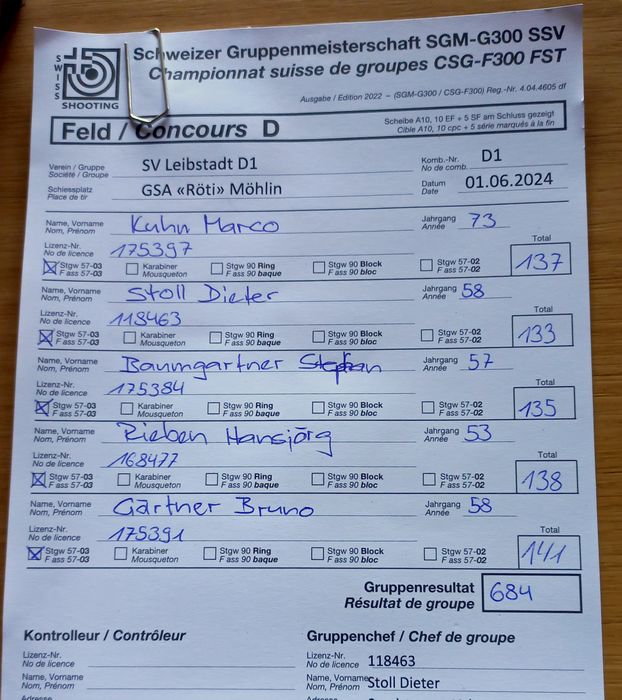 SWISS
SHOOTING
Schweizer Gruppenmeisterschaft SGM-G300 SSV
Championnat suisse de groupes CSG-F300 FST
Ausgabe / Edition 2022 – (SGM-G300 / CSG-F300) Reg.-Nr. 4.04.4605 df
Feld / Concours D
Scheibe A10, 10 EF + 5 SF am Schluss gezeigt
Cible A10, 10 cpc + 5 série marqués à la fin
Verein / Gruppe
Société / Groupe
SV Leibstadt D1
Komb.-Nr.
No de comb.
D1
Schiessplatz
Place de tir
GSA «Röti» Möhlin
Datum
Date
01.06.2024
Name, Vorname
Nom, Prénom
Kuhn Marco
Jahrgang
Année
73
Lizenz-Nr.
No de licence
175397
Total
Stgw 57-03
F ass 57-03
Karabiner
Mousqueton
Stgw 90 Ring
F ass 90 baque
Stgw 90 Block
F ass 90 bloc
Stgw 57-02
F ass 57-02
137
Name, Vorname
Nom, Prénom
Stoll Dieter
Jahrgang
Année
58
Lizenz-Nr.
No de licence
118463
Total
Stgw 57-03
F ass 57-03
Karabiner
Mousqueton
Stgw 90 Ring
F ass 90 baque
Stgw 90 Block
F ass 90 bloc
Stgw 57-02
F ass 57-02
133
Name, Vorname
Nom, Prénom
Baumgartner Stephan
Jahrgang
Année
57
Lizenz-Nr.
No de licence
175384
Total
Stgw 57-03
F ass 57-03
Karabiner
Mousqueton
Stgw 90 Ring
F ass 90 baque
Stgw 90 Block
F ass 90 bloc
Stgw 57-02
F ass 57-02
135
Name, Vorname
Nom, Prénom
Rieben Hansjörg
Jahrgang
Année
53
Lizenz-Nr.
No de licence
168477
Total
Stgw 57-03
F ass 57-03
Karabiner
Mousqueton
Stgw 90 Ring
F ass 90 baque
Stgw 90 Block
F ass 90 bloc
Stgw 57-02
F ass 57-02
138
Name, Vorname
Nom, Prénom
Gärtner Bruno
Jahrgang
Année
58
Lizenz-Nr.
No de licence
175391
Total
Stgw 57-03
F ass 57-03
Karabiner
Mousqueton
Stgw 90 Ring
F ass 90 baque
Stgw 90 Block
F ass 90 bloc
Stgw 57-02
F ass 57-02
141
Gruppenresultat
Résultat de groupe
684
Kontrolleur / Contrôleur
Gruppenchef / Chef de groupe
Lizenz-Nr.
No de licence
Lizenz-Nr.
No de licence
118463
Name, Vorname
Nom, Prénom
Name, Vorname
Nom, Prénom
Stoll Dieter